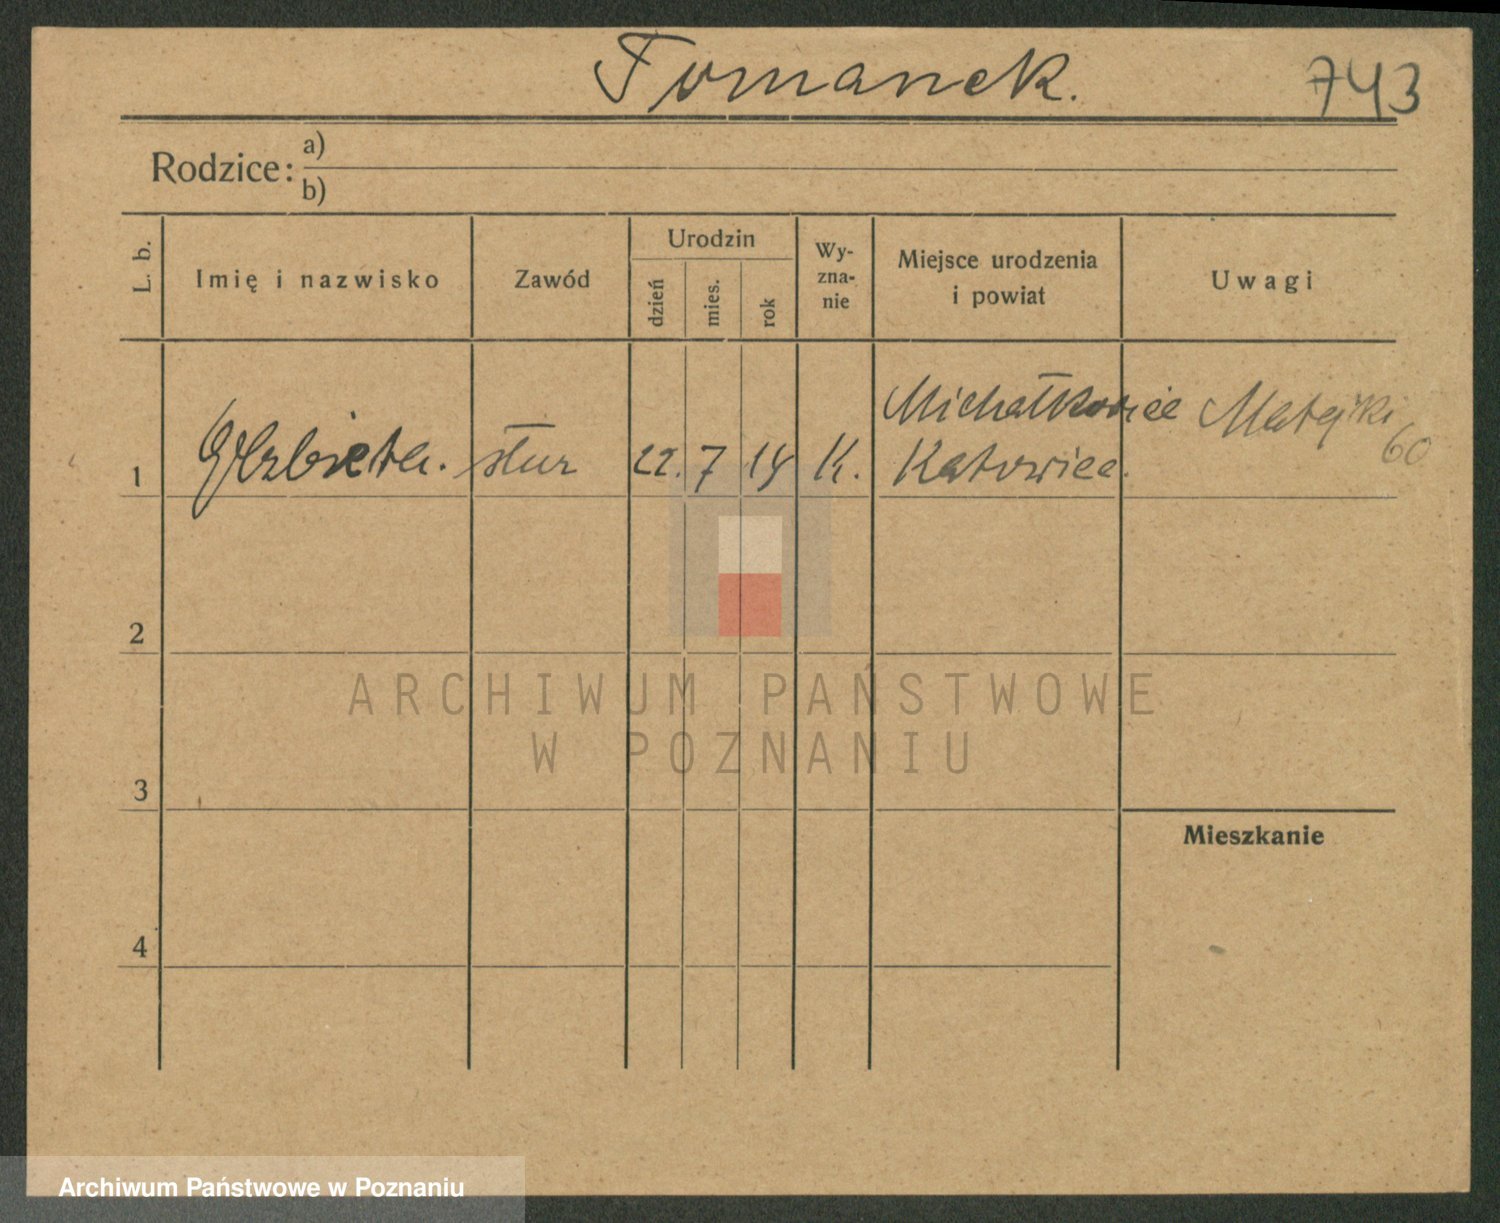 Tomanek.
743
Rodzice:
a)
b)
L. b.
Imię i nazwisko
Zawód
Urodzin
dzień
mies.
rok
Wy-
zna-
nie
Miejsce urodzenia
i powiat
Uwagi
Michałkowice
Matejki
60
1
Elżbieta.
służ
22. 7 19
K.
Katowice.
2
ARCHIWUM PAŃSTWOWE
W POZNANIU
3
Mieszkanie
4
Archiwum Państwowe w Poznaniu